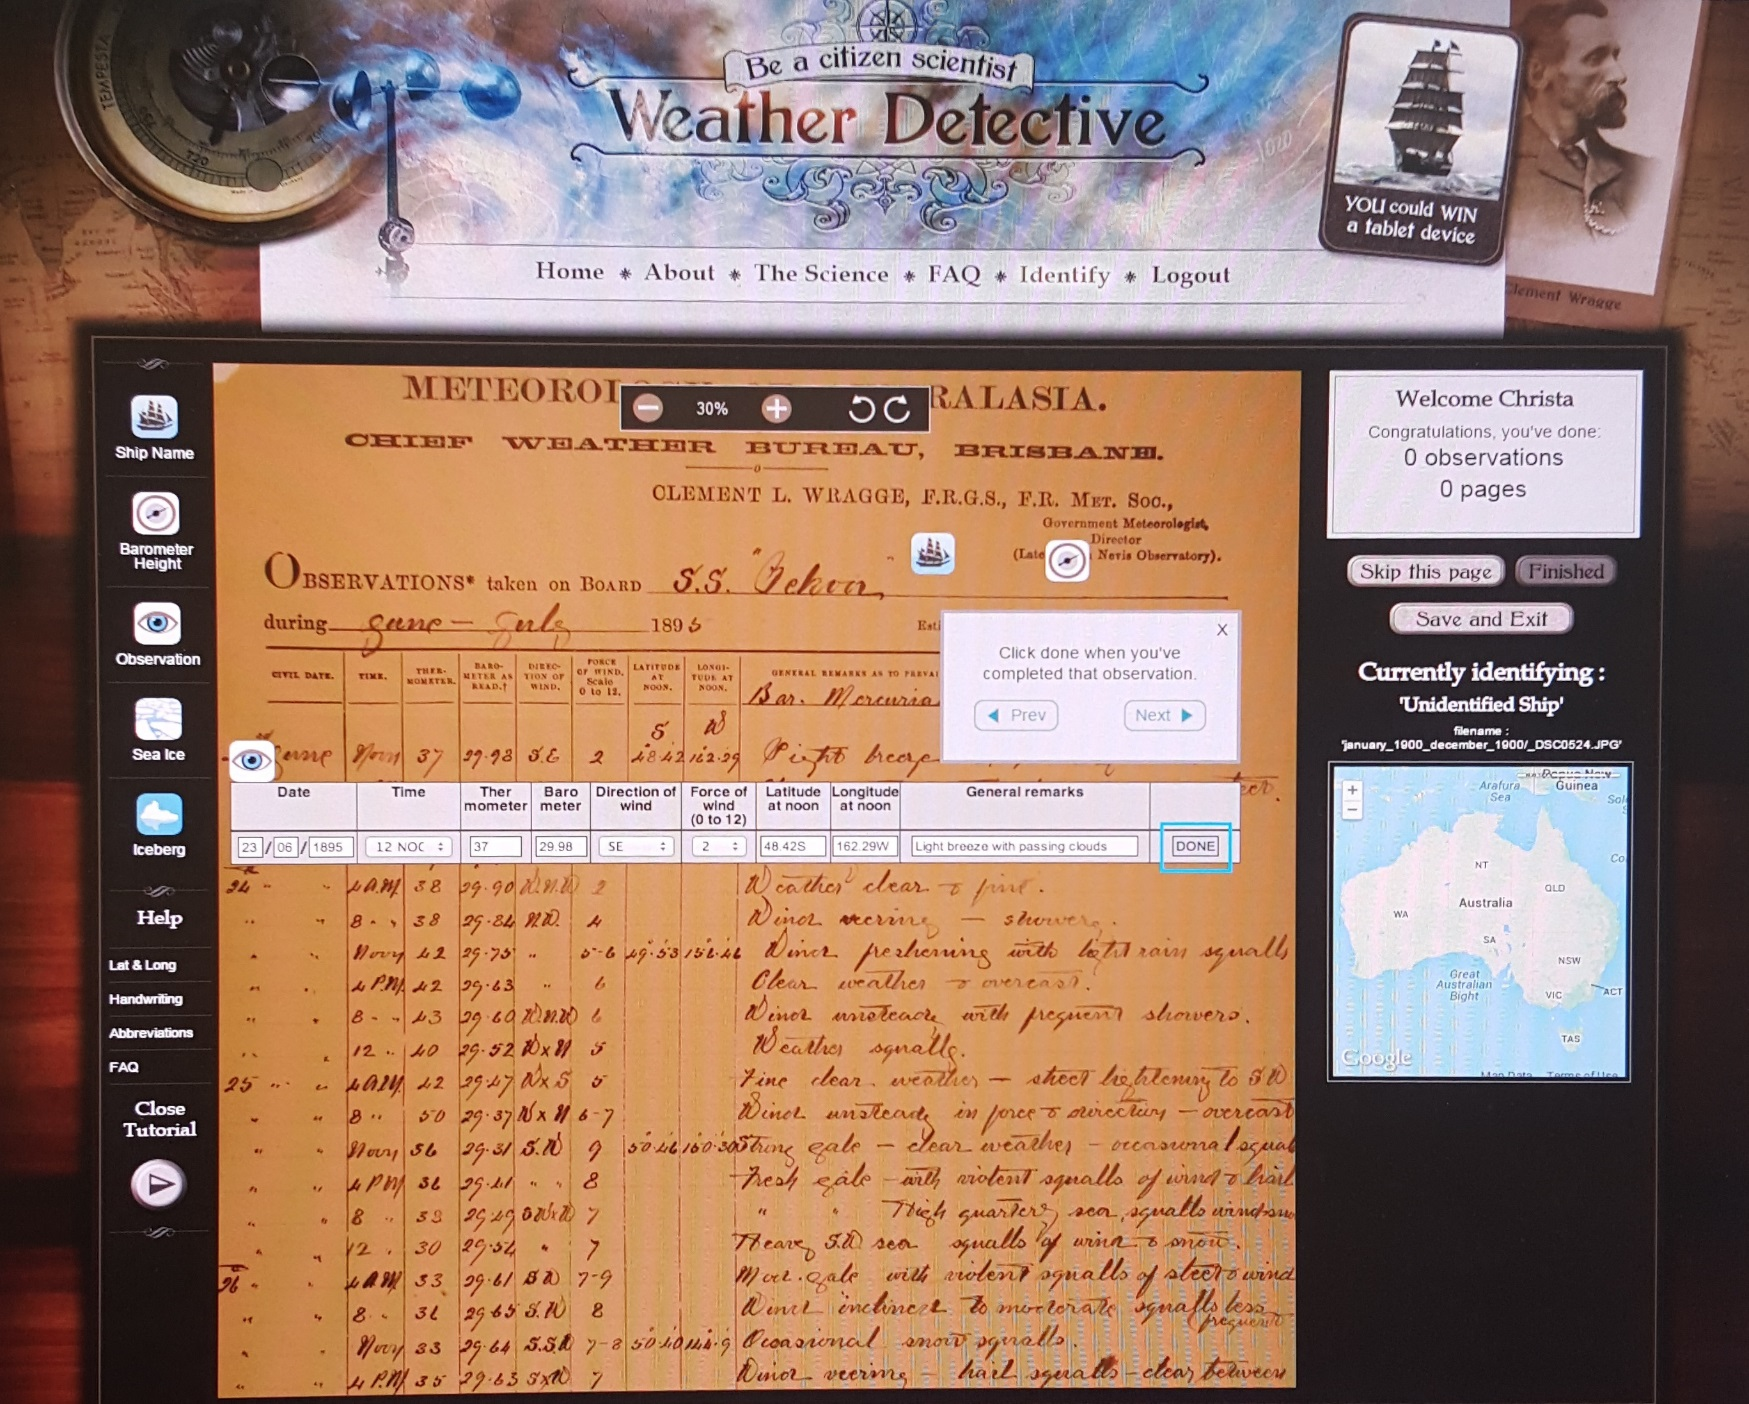 TEMPESTA
720
Be a citizen scientist
Weather Detective
YOU could WIN
a tablet device
Clement Wragge
Home * About * The Science * FAQ * Identify * Logout
Ship Name
Barometer
Height
Observation
Sea Ice
Iceberg
Help
Lat & Long
Handwriting
Abbreviations
FAQ
Close
Tutorial
30%
CHIEF WEATHER BUREAU, BRISBANE.
CLEMENT L. WRAGGE, F.R.G.S., F.R. MET. SOC.,
Government Meteorologist,
Director
(Late Nevis Observatory).
OBSERVATIONS* taken on BOARD S.S.
during June - July 1895
CIVIL DATE. TIME. THER-MOMETER. BARO-METER AS READ.† DIREC-TION OF WIND. FORCE OF WIND. Scale 0 to 12. LATITUDE AT NOON. LONGI-TUDE AT NOON. GENERAL REMARKS AS TO
Bar.
S W
June Noon 37 29.98 S.E 2 48.42 162.29 Light breeze
Click done when you've
completed that observation.
Prev Next
X
Date Time Ther mometer Baro meter Direction of wind Force of wind (0 to 12) Latitude at noon Longitude at noon General remarks
23 / 06 / 1895 12 NOC 37 29.98 SE 2 48.42S 162.29W Light breeze with passing clouds DONE
24 " " 4 AM 38 29.90 W.N.W 2 Weather clear & fine.
" " 8 " " 38 29.84 N.W. 4 Wind veering — showery.
" " Noon 42 29.75 " 5-6 49.53 156.46 Wind freshening with light rain squalls
" " 4 P.M. 42 29.63 " 6 Clear weather & overcast.
" " 8 " " 43 29.60 W.N.W 6 Wind unsteady with frequent showers.
" " 12 " 40 29.52 WxN 5 Weather squally.
25 " " 4 AM. 42 29.47 WxS 5 Fine clear weather — sheet lightening to SW
" " 8 " 50 29.37 WxN 6-7 Wind unsteady in force & direction — overcast
" " Noon 56 29.31 S.W 9 50.46 150.30 Strong gale — clear weather — occasional squal
" " 4 PM 36 29.41 " " 8 Fresh gale — with violent squalls of wind & hail
" " 8 " 33 7 " " High quarterly sea, squalls wind
" " 12 " 30 29.54 " 7 Heavy S.W sea squalls of wind & snow.
26 " 4 AM 33 29.61 SW 7-9 Mod. gale with violent squalls of sleet & wind
" " 8 " 36 29.65 S.W 8 Wind inclined to moderate squalls less
frequent
" Noon 33 29.64 S.S.W 7-8 50.40 144.9 Occasional snow squalls.
" " 4 P.M 35 29.63 SxW 7 Wind veering — hail squalls — clear between
Welcome Christa
Congratulations, you've done:
0 observations
0 pages
Skip this page Finished
Save and Exit
Currently identifying :
'Unidentified Ship'
filename :
'january_1900_december_1900/_DSC0524.JPG'
Papua New
Guinea
Arafura
Sea
NT
QLD
Australia
WA
SA
NSW
Great
Australian
Bight
VIC
ACT
TAS
Google
Map Data Terms of Use